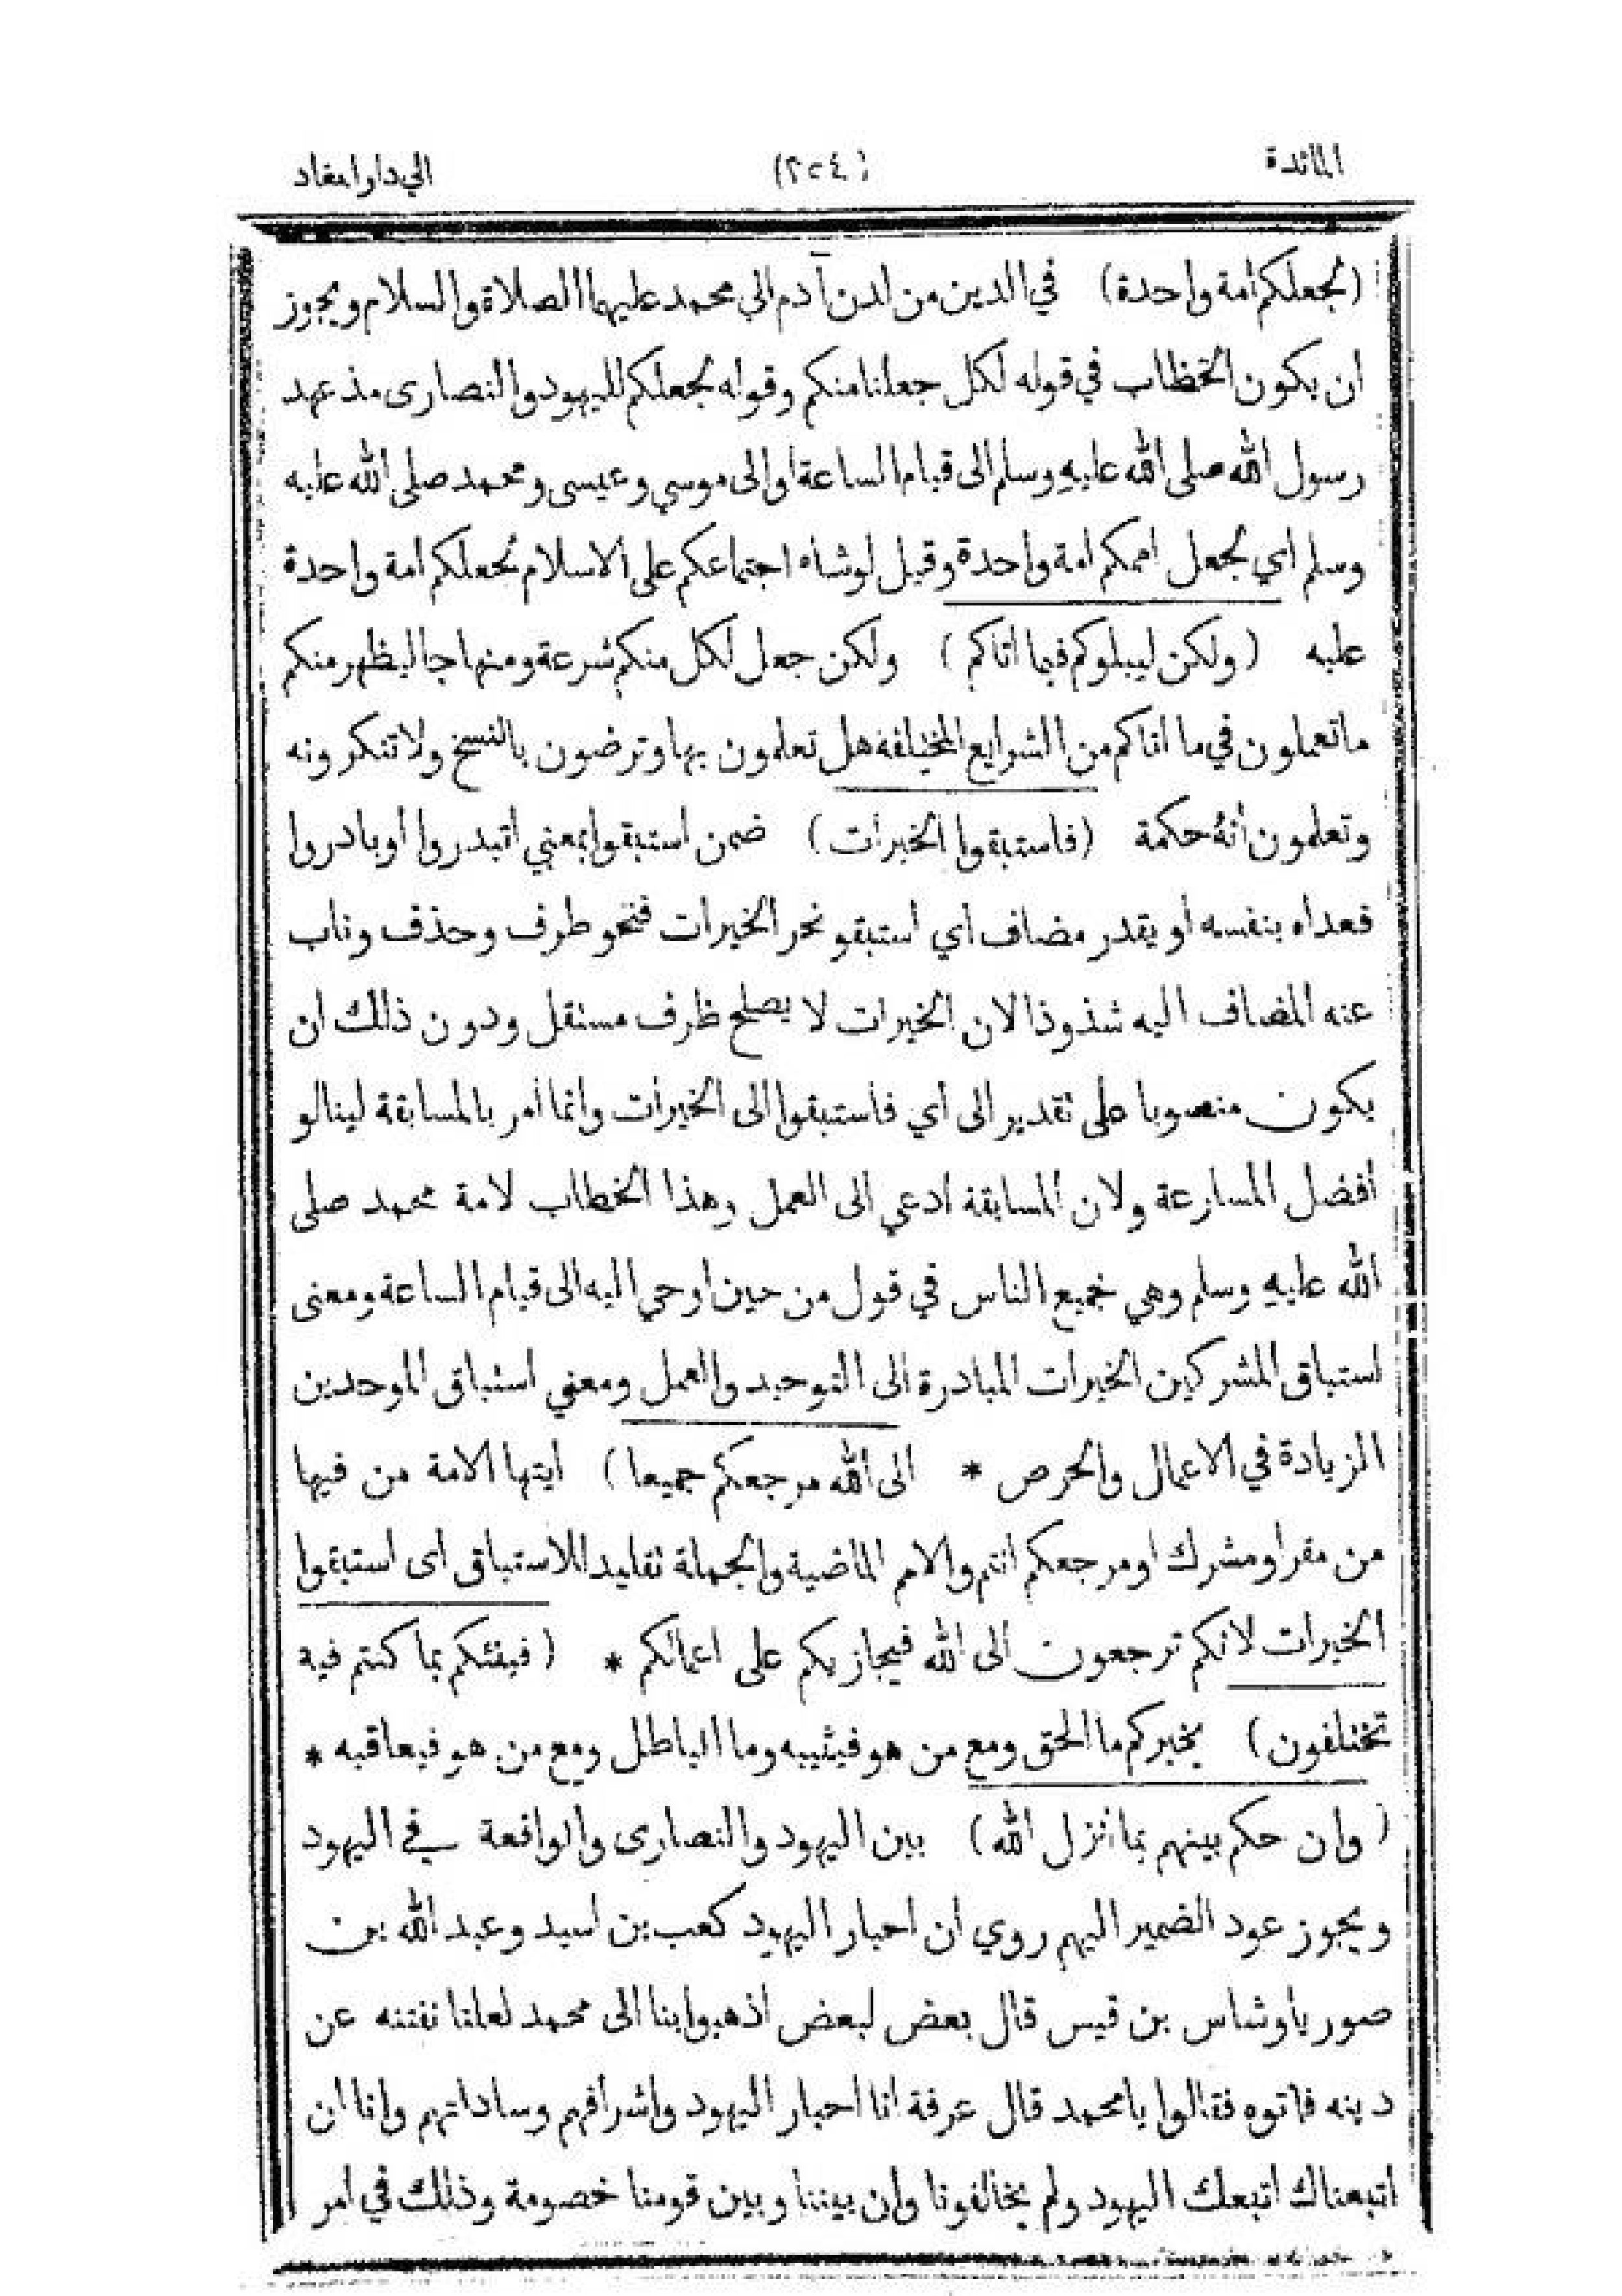 المائدة
(٢٥٤)
الي دار المعاد
(لجعلكم امة واحدة) في الدين من لدن آدم الي محمد عليهما الصلاة والسلام ويجوز
ان يكون الخطاب في قوله لكل جعلنا منكم وقوله لجعلكم لليهود والنصارى مذ عهد
رسول الله صلى الله عليه وسلم الى قيام الساعة أو الى موسي وعيسى ومحمد صلى الله عليه
وسلم اي لجعل اممكم امة واحدة وقيل لو شاء اجتماعكم على الاسلام لجعلكم امة واحدة
عليه (ولكن ليبلوكم فيما اتاكم) ولكن جعل لكل منكم شرعة ومنهاجا ليظهر منكم
ما تعملون في ما اتاكم من الشرايع المختلفة هل تعلمون بها وترضون بالنسخ ولا تنكرونه
وتعلمون أنه حكمة (فاستبقوا الخيرات) ضمن استبقوا بمعني ابتدروا أو بادروا
فعداه بنفسه أو يقدر مضاف أي استبقو نحر الخيرات فنحو طرف وحذف وناب
عنه المضاف اليه شذوذا لان الخيرات لا يصلح ظرف مستقل ودون ذالك ان
يكون منصوبا على تقدير الى أي فاستبقوا الى الخيرات وانما أمر بالمسابقة لينالو
أفضل المسارعة ولان المسابقة ادعي الى العمل وهذا الخطاب لامة محمد صلى
الله عليه وسلم وهي جميع الناس في قول من حين اوحي اليه الى قيام الساعة ومعنى
استباق المشركين الخيرات المبادرة الى التوحيد والعمل ومعني استباق الموحدين
الزيادة في الاعمال والحرص * الى الله مرجعكم جميعا) ايتها الامة من فيها
من مقر أو مشرك او مرجعكم انتم والامم الماضية والجملة تقليد للاستباق اى استبقوا
الخيرات لانكم ترجعون الى الله فيجازيكم على اعمالكم * (فينئكم بما كنتم فيه
تختلفون) يخبركم ما الحق ومع من هو فيثيبه وما الباطل ومع من هو فيعاقبه *
(وان حكم بينهم بما انزل الله) بين اليهود والنصارى والواقعة في اليهود
ويجوز عود الضمير اليهم روي ان احبار اليهود كعب بن اسيد وعبد الله بن
صوريا وشاس بن قيس قال بعض لبعض اذهبوا بنا الى محمد لعلنا نفتنه عن
دينه فاتوه فقالوا يا محمد قال عرفة انا احبار اليهود واشرافهم وساداتهم وانا ان
اتبعناك اتبعك اليهود ولم يخالفونا وان بيننا وبين قومنا خصومة وذلك في امر